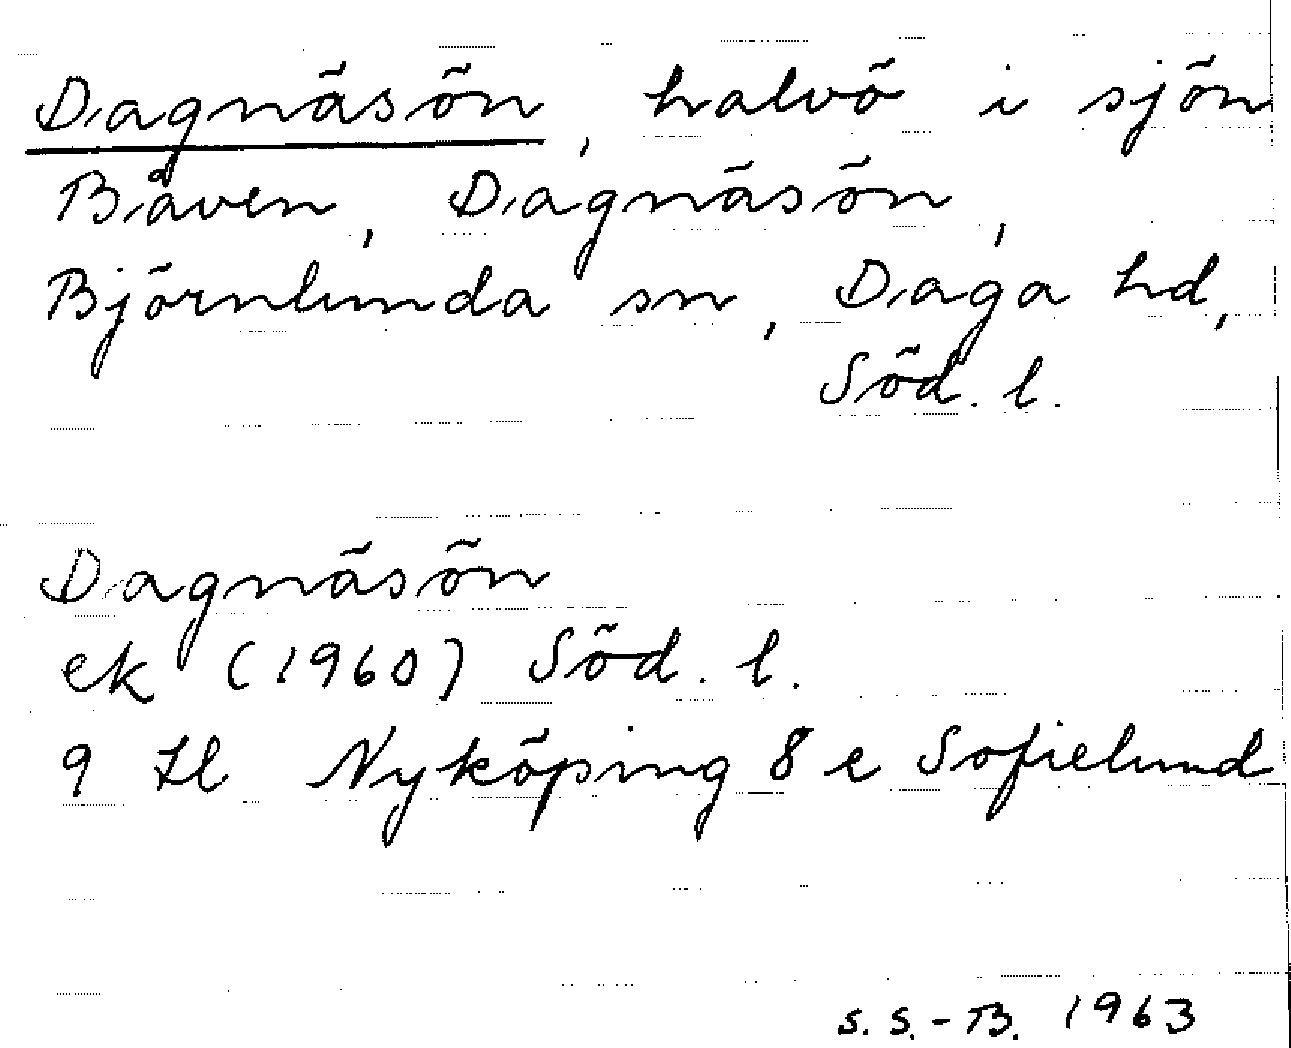 Dagnäsön, halvö i sjön
Båven, Dagnäsön,
Björnlunda sn, Daga hd,
Söd. l.
Dagnäsön
ek (1960) Söd. l.
9 Il Nyköping 8 e Sofielund
S. S.-B. 1963